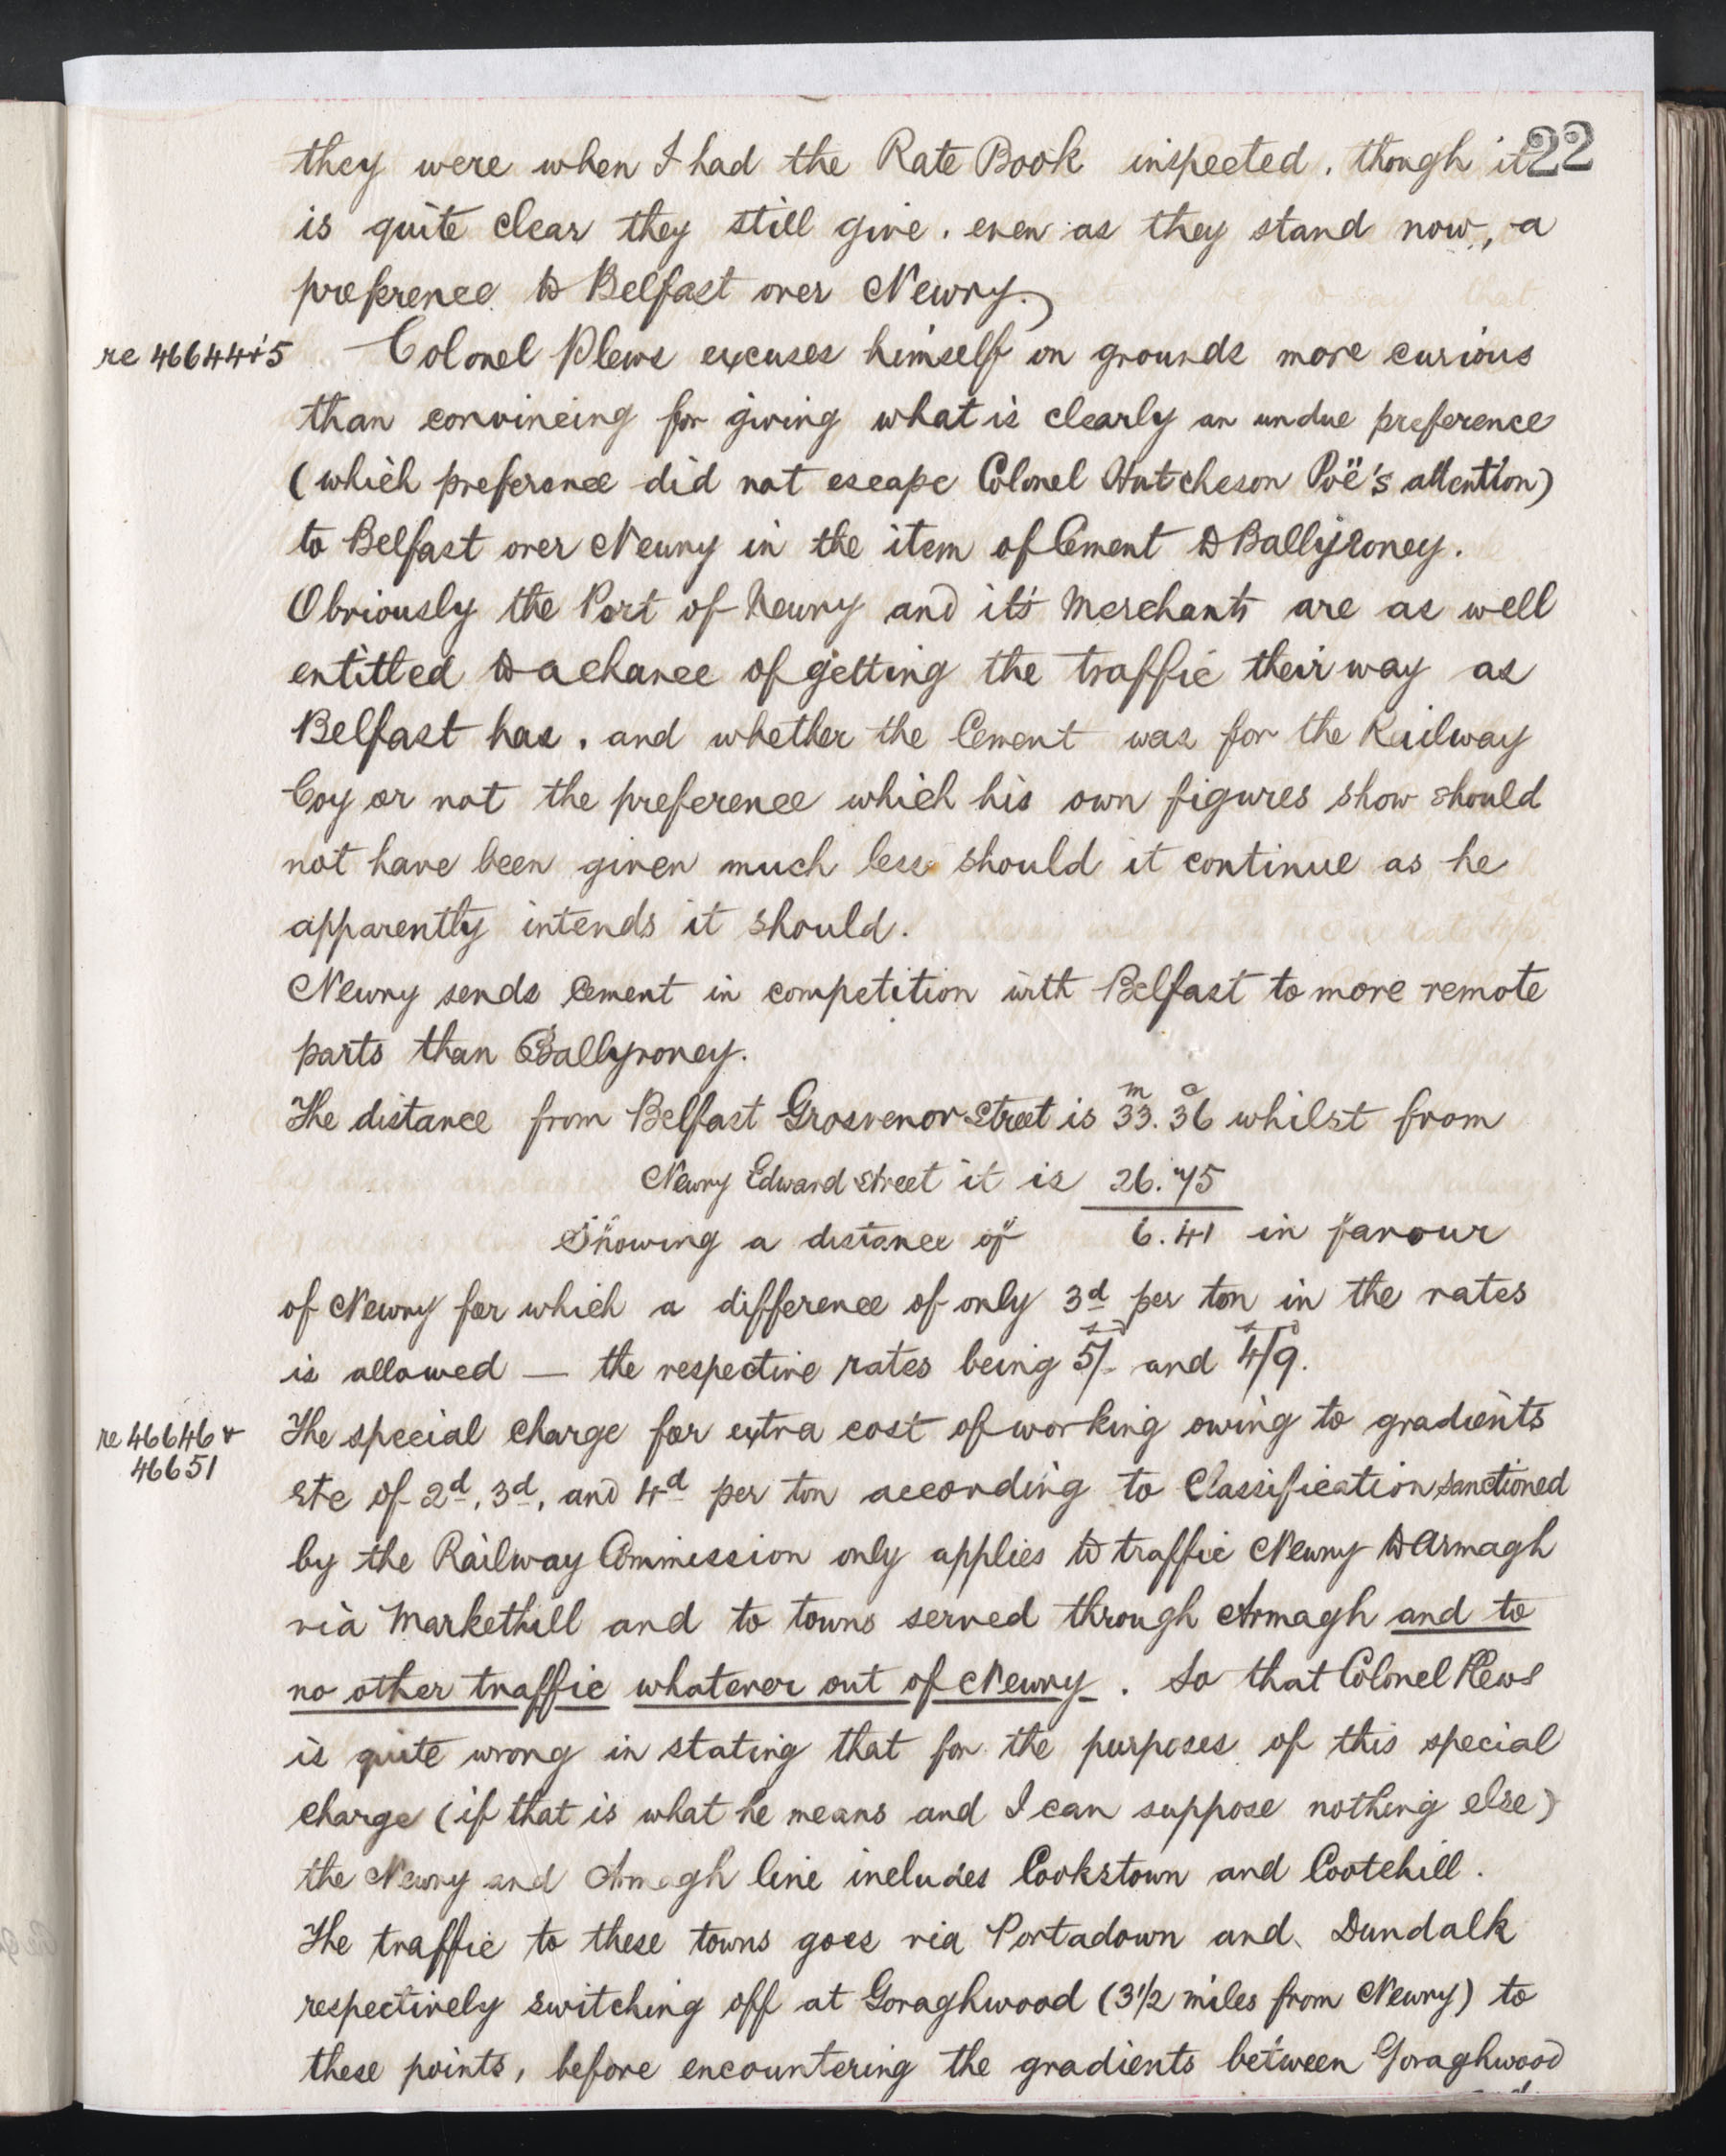 22
they were when I had the Rate Book inspected, though it
is quite clear they still give, even as they stand now, a
preference to Belfast over Newry.
re 46644+5 Colonel Plews excuses himself on grounds more curious
than convincing for giving what is clearly an undue preference
(which preference did not escape Colonel Hutcheson Poë's attention)
to Belfast over Newry in the item of Cement to Ballyroney.
Obviously the Port of Newry and it's Merchants are as well
entitled to a chance of getting the traffic their way as
Belfast has, and whether the Cement was for the Railway
Coy or not the preference which his own figures show should
not have been given much less should it continue as he
apparently intends it should.
Newry sends Cement in competition with Belfast to more remote
parts than Ballyroney.
The distance from Belfast Grosvenor Street is 33.m 36c whilst from
Newry Edward Street it is 26.75
Showing a distance of 6.41 in favour
of Newry for which a difference of only 3d per ton in the rates
is allowed — the respective rates being 5/- and 4/9.
re 46646 & The special charge for extra cost of working owing to gradients
46651 etc of 2d, 3d, and 4d per ton according to Classification sanctioned
by the Railway Commission only applies to traffic Newry to Armagh
via Markethill and to towns served through Armagh and to
no other traffic whatever out of Newry. So that Colonel Plews
is quite wrong in stating that for the purposes of this special
charge (if that is what he means and I can suppose nothing else)
the Newry and Armagh line includes Cookstown and Cootehill.
The traffic to these towns goes via Portadown and Dundalk
respectively switching off at Goraghwood (3½ miles from Newry) to
these points, before encountering the gradients between Goraghwood